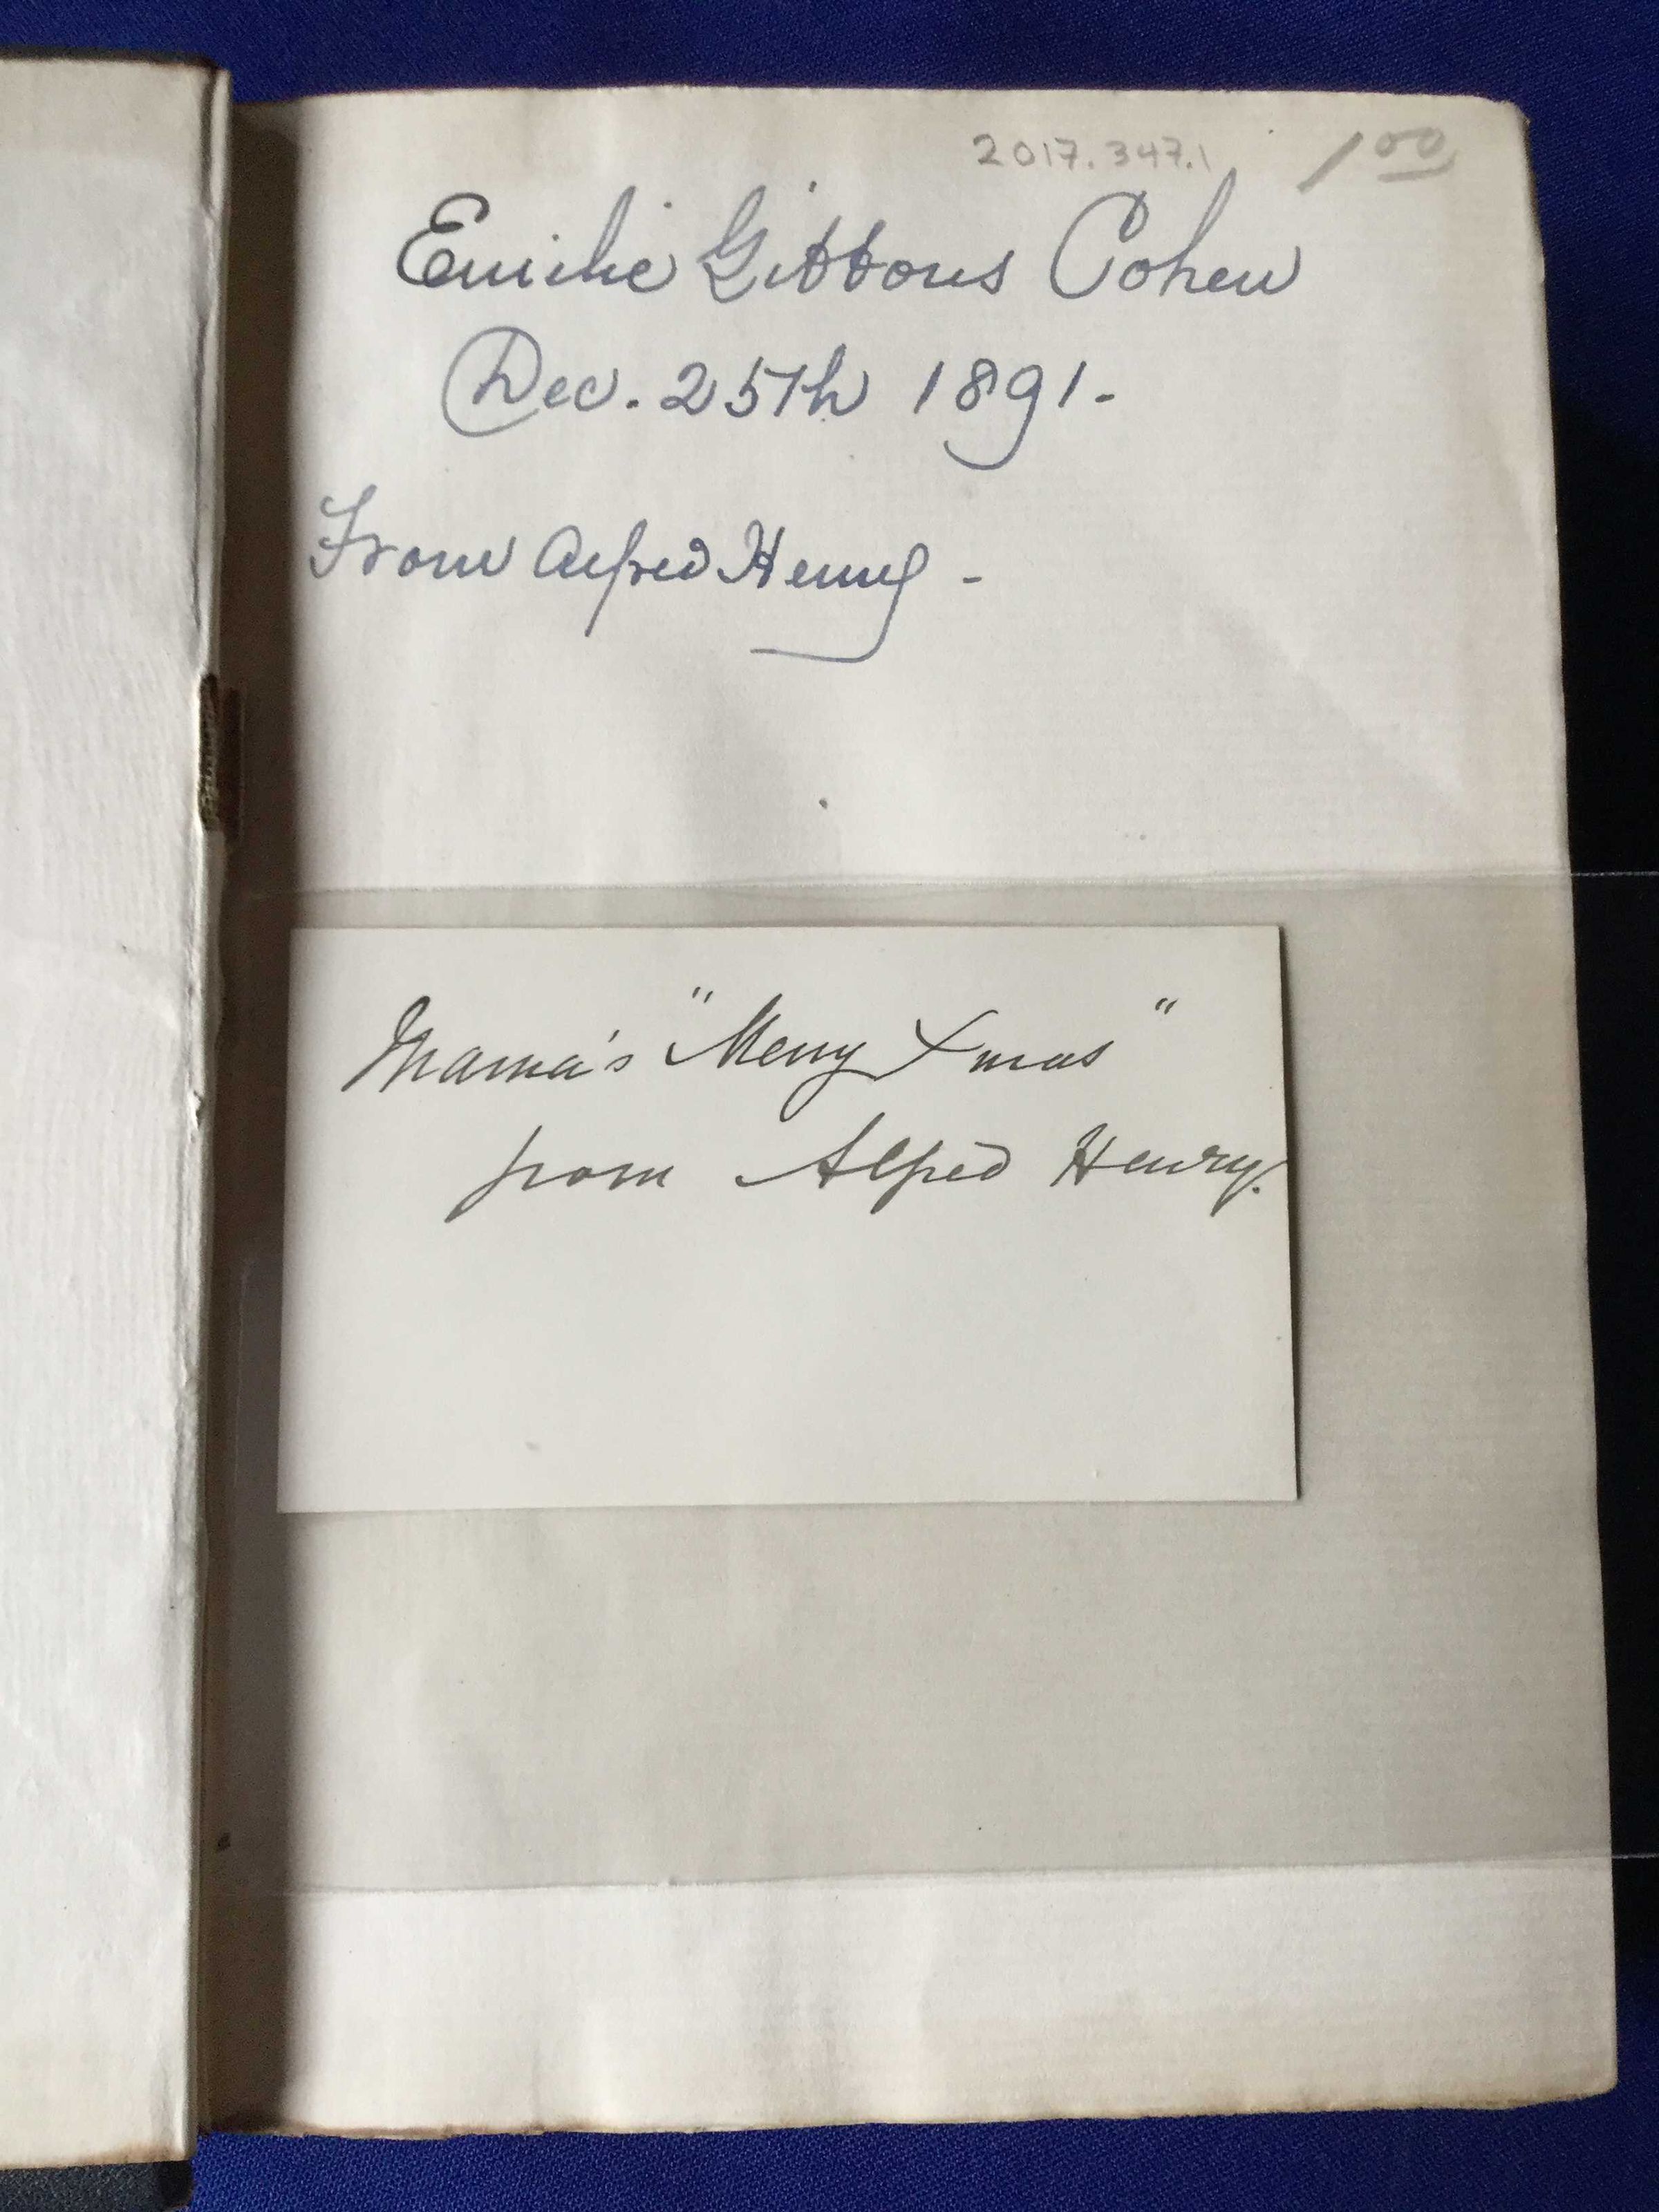 2017.347.1 1 00
Emilie Gibbons Cohen
Dec. 25th 1891.-
From Alfred Henry -
Mama's "Merry Xmas"
from Alfred Henry.